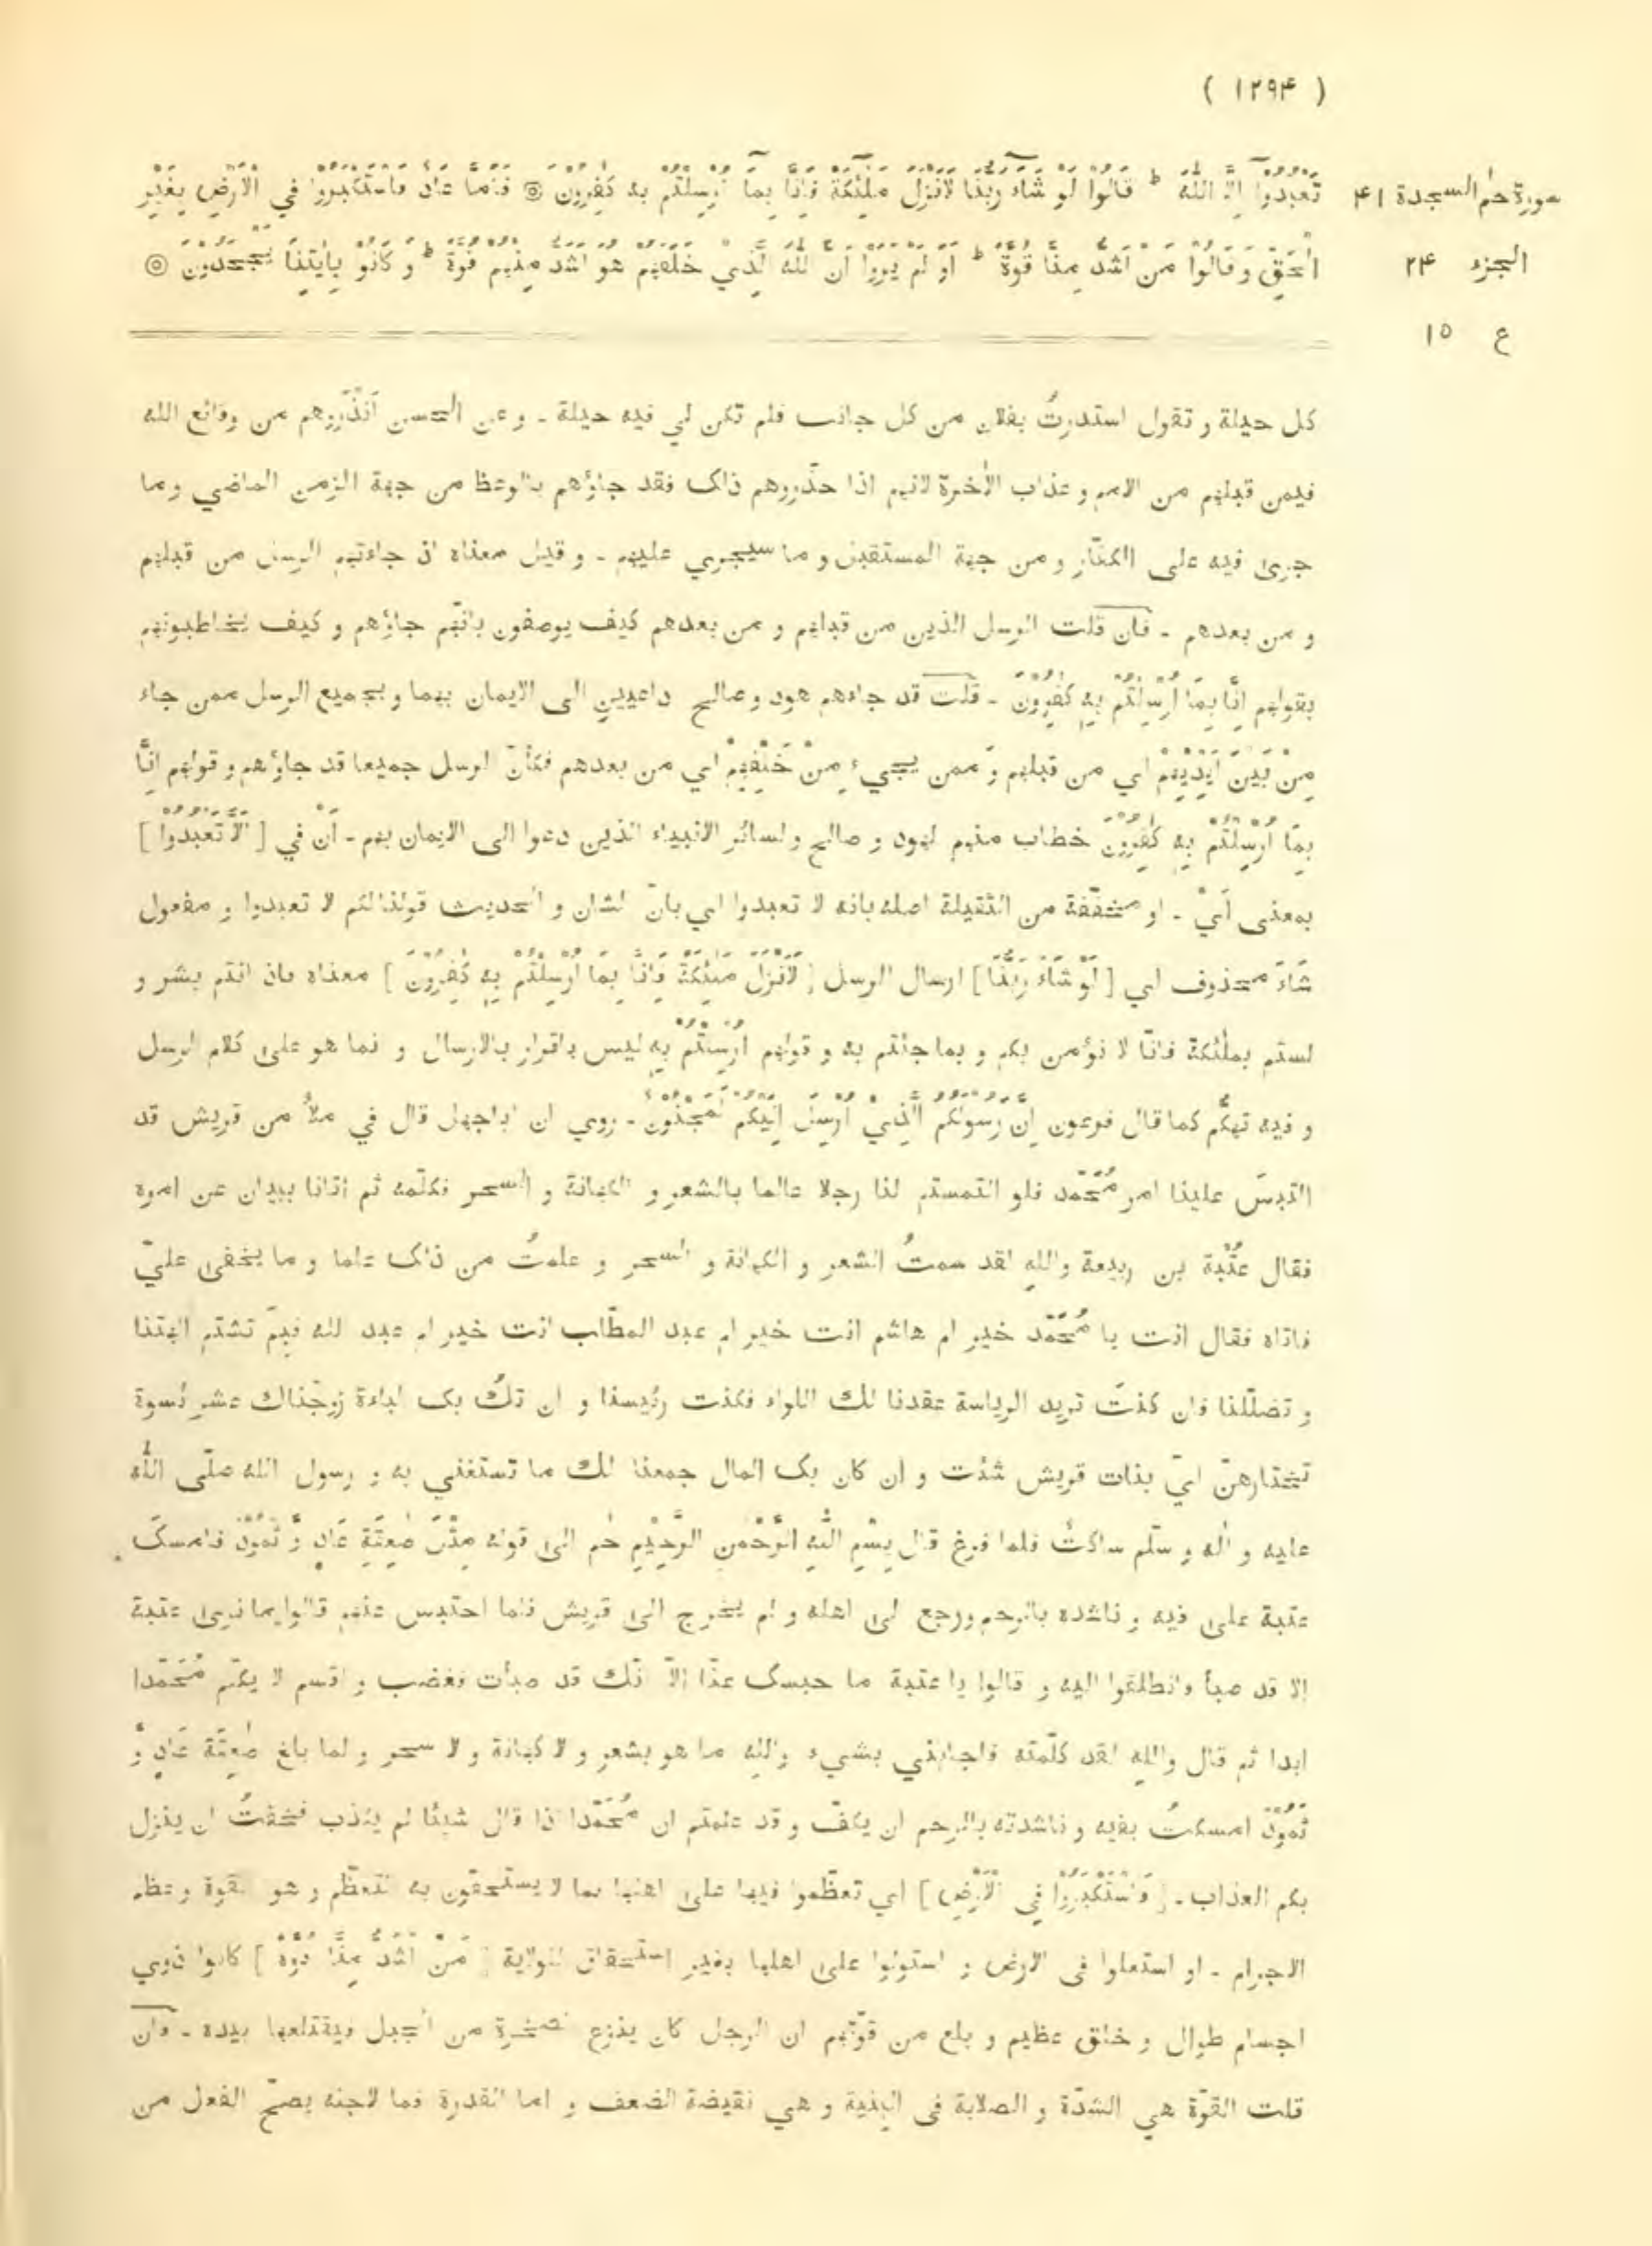 ( ١٢٩۴ )
سورة حٰم السجدة ۴١
الجزء ٢۴
ع ١٥
تَعْبُدُوْٓا اِلَّا اللّٰهَ ط قَالُوْا لَوْ شَآءَ رَبُّنَا لَاَنْزَلَ مَلٰٓئِكَةً فَاِنَّا بِمَآ اُرْسِلْتُمْ بِهٖ كٰفِرُوْنَ ◎ فَاَمَّا عَادٌ فَاسْتَكْبَرُوْا فِي الْاَرْضِ بِغَيْرِ
الْحَقِّ وَ قَالُوْا مَنْ اَشَدُّ مِنَّا قُوَّةً ط اَوَ لَمْ يَرَوْا اَنَّ اللّٰهَ الَّذِيْ خَلَقَهُمْ هُوَ اَشَدُّ مِنْهُمْ قُوَّةً ط وَ كَانُوْا بِاٰيٰتِنَا يَجْحَدُوْنَ ◎
كل حيلة و تقول استدرتُ بفلان من كل جانب فلم تكن لي فيه حيلة - و عن الحسن اَنْذَرُوهم من وقائع الله
فيمن قبلهم من الامم و عذاب الاٰخرة لانهم اذا حذّروهم ذاك فقد جاؤهم بالوعظ من جهة الزمن الماضي و ما
جرى فيه على الكفّار و من جهة المستقبل و ما سيجري عليهم - و قيل معناه اذ جاءتهم الرسل من قبلهم
و من بعدهم - فان قلت الرسل الذين من قبلهم و من بعدهم كيف يوصفون بانّهم جاؤهم و كيف يخاطبونهم
بقولهم اِنَّا بِمَا اُرْسِلْتُمْ بِهٖ كٰفِرُوْنَ - قلت قد جاءهم هود و صالح داعيين الى الايمان بهما و بجميع الرسل ممن جاء
مِنْ بَيْنِ اَيْدِيْهِمْ اي من قبلهم و ممن يجيء مِنْ خَلْفِهِمْ اي من بعدهم فكأنّ الرسل جميعا قد جاؤهم و قولهم اِنَّا
بِمَا اُرْسِلْتُمْ بِهٖ كٰفِرُوْنَ خطاب منهم لهود و صالح و لسائر الانبياء الذين دعوا الى الايمان بهم - اَنْ في [ اَلَّا تَعْبُدُوْا ]
بمعنى اَيْ - او مخفّفة من الثقيلة اصله بانه لا تعبدوا اي بانّ الشان و الحديث قولنا لكم لا تعبدوا و مفعول
شَاءَ محذوف اي [ لَوْ شَاءَ رَبُّنَا ] ارسال الرسل [ لَاَنْزَلَ مَلٰئِكَةً فَاِنَّا بِمَا اُرْسِلْتُمْ بِهٖ كٰفِرُوْنَ ] معناه فاذ انتم بشر و
لستم بملٰئكة فانّا لا نؤمن بكم و بما جئتم به و قولهم اُرْسِلْتُمْ بِهٖ ليس باقرار بالارسال و انما هو على كلام الرسل
و فيه تهكّم كما قال فرعون اِنَّ رَسُوْلَكُمُ الَّذِيْ اُرْسِلَ اِلَيْكُمْ لَمَجْنُوْنٌ - روي ان اباجهل قال في ملأٍ من قريش قد
التبسَ علينا امر مُحَمَّد فلو التمستم لنا رجلا عالما بالشعر و الكهانة و السحر فكلّمه ثم اتانا ببيان عن امره
فقال عُتْبة بن ربيعة واللهِ لقد سمعتُ الشعر و الكهانة و السحر و علمتُ من ذاك علما و ما يخفى عليّ
فاتاه فقال انت يا مُحَمَّد خير ام هاشم انت خير ام عبد المطّلب انت خير ام عبد الله فبِمَ تشتم اٰلهتنا
و تضلّلنا فان كنتَ تريد الرياسة عقدنا لك اللواء فكنت رئيسنا و ان تكُ بك الباءة زوّجناك عشر نسوة
تختارهنّ ايّ بنات قريش شئت و ان كان بك المال جمعنا لك ما تستغني به و رسول الله صلّى اللّٰه
عليه و اٰله و سلّم ساكتٌ فلما فرغ قال بِسْمِ اللّٰهِ الرَّحْمٰنِ الرَّحِيْمِ حٰم الى قوله مِثْلَ صٰعِقَةِ عَادٍ وَّ ثَمُوْدَ فامسكَ
عتبة على فيه و ناشده بالرحم و رجع الى اهله و لم يخرج الى قريش فلما احتبس عنهم قالوا ما نرى عتبة
إلا قد صبأ فانطلقوا اليه و قالوا يا عتبة ما حبسك عنّا إلّا انّك قد صبأت فغضب و اقسم لا يكلّم مُحَمَّدا
ابدا ثم قال واللهِ لقد كلّمته فاجابني بشيء واللهِ ما هو بشعر و لا كهانة و لا سحر و لما بلغ صٰعِقَةِ عَادٍ وَّ
ثَمُوْدَ امسكتُ بفيه و ناشدته بالرحم ان يكفّ و قد علمتم ان مُحَمَّدا اذا قال شيئا لم يكذب فخفتُ ان ينزل
بكم العذاب - [ فَاسْتَكْبَرُوْا فِى الْاَرْضِ ] اي تعظّموا فيها على اهلها بما لا يستحقّون به التعظّم و هو القوة و عظم
الاجرام - او استعلوا فى الارض و استولوا على اهلها بغير استحقاق للولاية [ مَنْ اَشَدُّ مِنَّا قُوَّةً ] كانوا ذوي
اجسام طوال و خلق عظيم و بلغ من قوّتهم ان الرجل كان ينزع الصخرة من الجبل فيقتلعها بيده - فان
قلت القوّة هي الشدّة و الصلابة فى البنية و هي نقيضة الضعف و اما القدرة فما لاجله يصحّ الفعل من